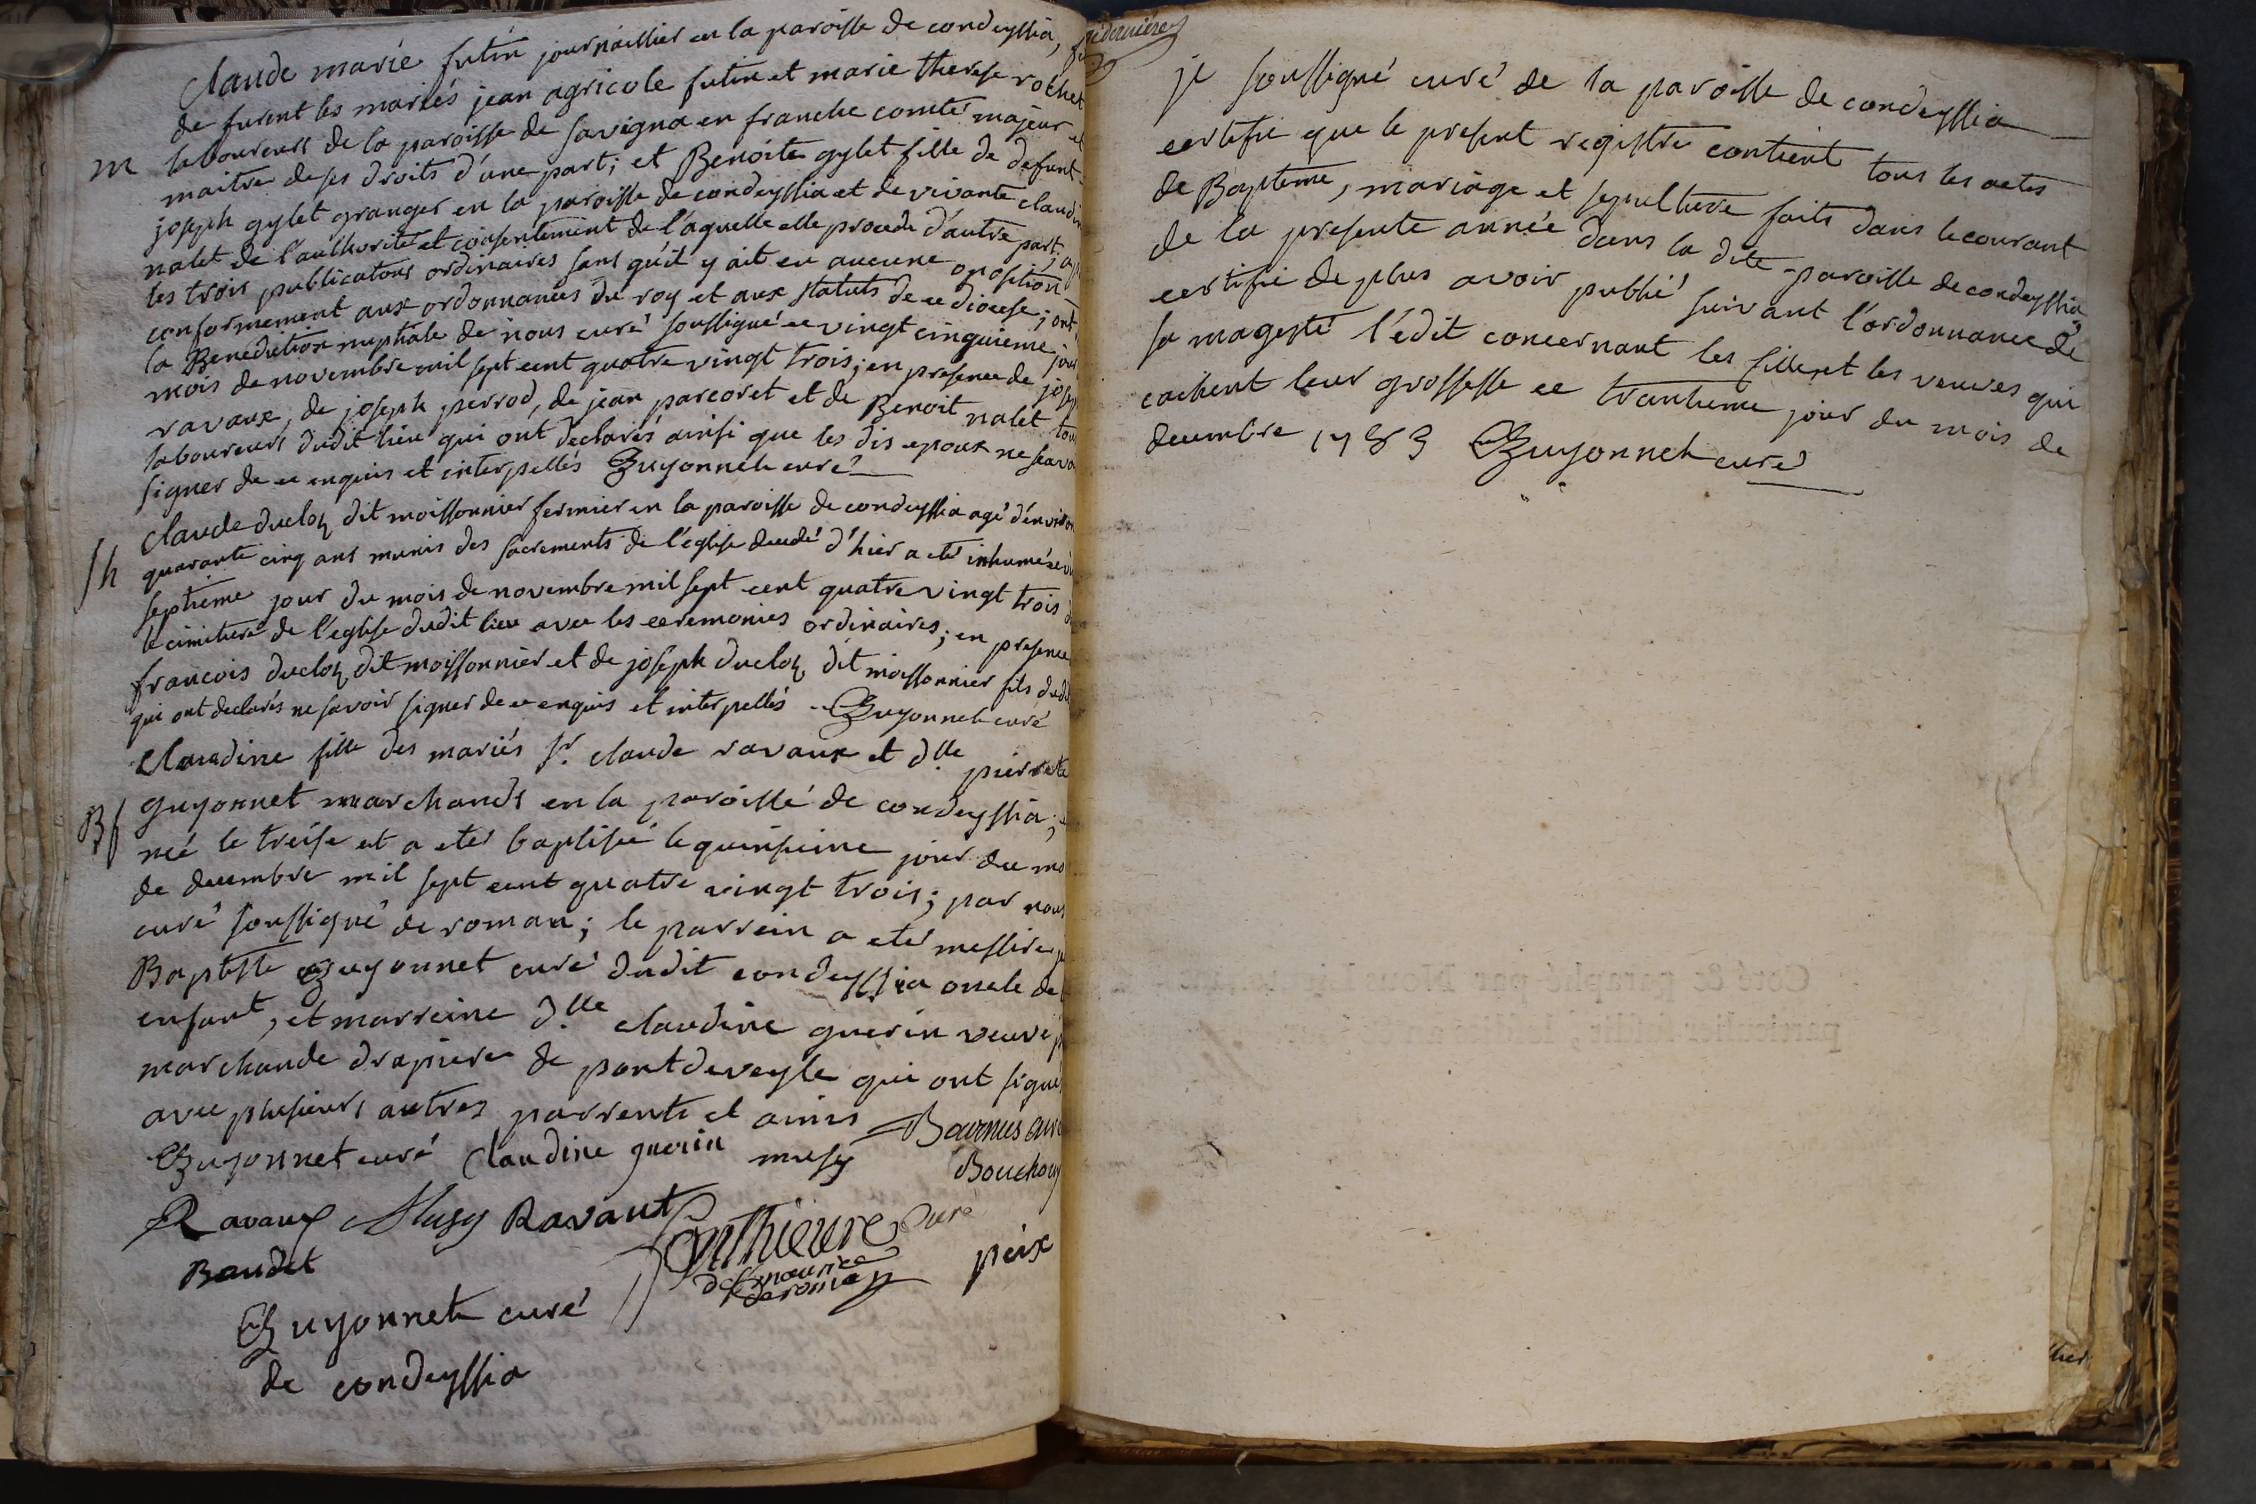 Claude marie futin journallier en la paroisse de condeyssia,
de furent les mariés jean agricole futin et marie therese rochet
m laboureurs de la paroisse de savigna en franche comté majeur et
maitre de ses droits d'une part; et Benoite gylet fille de defunt
joseph gylet granger en la paroisse de condeyssia et de vivante claudine
nalet de l'authorité et consentement de l'aquelle elle procede d'autre part;
les trois publicatons ordinaires sans qu'il y ait eu aucune oposition
conformement aux ordonnances du roy et aux statuts de ce diocese; ont
la Benediction nuptiale de nous curé soussigné ce vingt cinquieme jour
mois de novembre mil sept cent quatre vingt trois; en presence de joseph
ravaux, de joseph perrod, de jean parcoret et de Benoit nalet tous
laboureurs dudit lieu qui ont declarés ainsi que les dis epoux ne scavoir
signer de ce enquis et interpellés Guyonnet curé
claude ducloz dit moissonnier fermier en la paroisse de condeyssia agé d'environ
Sh quarante cinq ans munis des sacrements de l'eglise decedé d'hier a eté inhumé ce
septieme jour du mois de novembre mil sept cent quatre vingt trois
le cimitiere de l'eglise dudit lieu avec les ceremonies ordinaires; en presence
francois ducloz dit moissonnier et de joseph ducloz dit moissonnier fils dudit
qui ont declarés ne savoir signer de ce enquis et interpellés Guyonnet curé
Claudine fille des mariés Sr. claude ravaux et dlle pierrette
Bf guyonnet marchands en la paroisse de condeyssia;
née le treise et a eté baptisée le quinsieme jour du mois
de decembre mil sept cent quatre vingt trois; par nous
curé soussigné de roman; le parrein a eté messire
Baptiste Guyonnet curé dudit condeyssia oncle de
enfant, et marreine dlle claudine guerin veuve
marchande drapiere de pontdeveyle qui ont signé
avec plusieurs autres parrents et amis
Guyonnet curé Claudine guerin musy Bournus curé
Bouchouy
Ravaux Musy Ravaut Ponthieure curé
Baudet de St maurice peix
de roman
Guyonnet curé
de condeyssia
& derniere
je soussigné curé de la paroisse de condeyssia
certifie que le present registre contient tous les actes
de Bapteme, mariage et sepulture faits dans le courant
de la presente année dans la dite paroisse de condeyssia
certifie de plus avoir publié suivant l'ordonnance de
sa magesté l'édit concernant les filles et les veuves qui
cachent leur grossesse ce trantieme jour du mois de
decembre 1783 Guyonnet curé